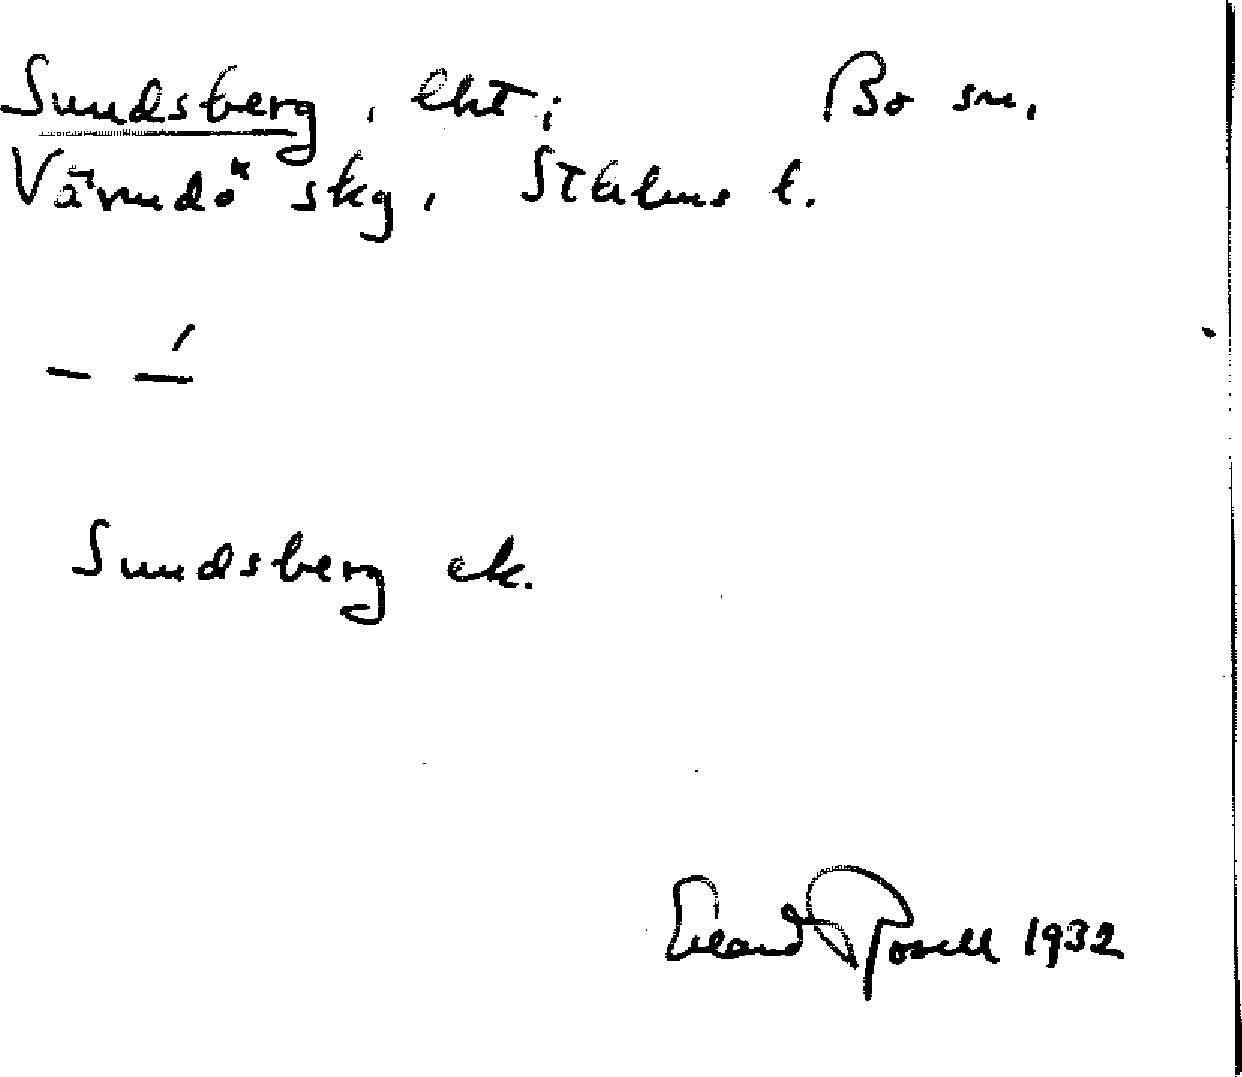 Sundsberg, lht; Bo sn,
Värmdö skg, Sthlms l.
— —́
Sundsberg ek.
Erland Rosell 1932